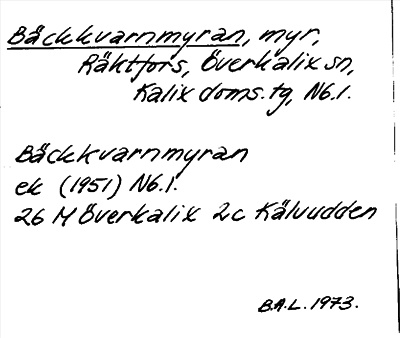 Bäckkvarnmyran, myr,
Räktfors, Överkalix sn,
Kalix doms.tg, Nb.l.
Bäckkvarnmyran
ek (1951) Nb.l.
26 M Överkalix 2c Kälvudden
B.A.L. 1973.